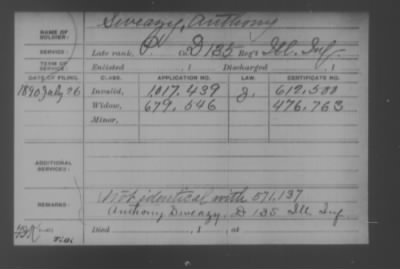 NAME OF SOLDIER: Sweazy, Anthony
SERVICE: Late rank, P Co. D 135 Reg't Ill. Inf.
TERM OF SERVICE: Enlisted , 1 Discharged , 1
DATE OF FILING. CLASS. APPLICATION NO. LAW. CERTIFICATE NO.
1890 July 26 Invalid, 1.017.439 J. 612.500
Widow, 679.546 476.763
Minor,
ADDITIONAL SERVICES:
REMARKS: Not identical with 571.137
Anthony Sweazy, D 135 Ill. Inf
Died , 1 , at